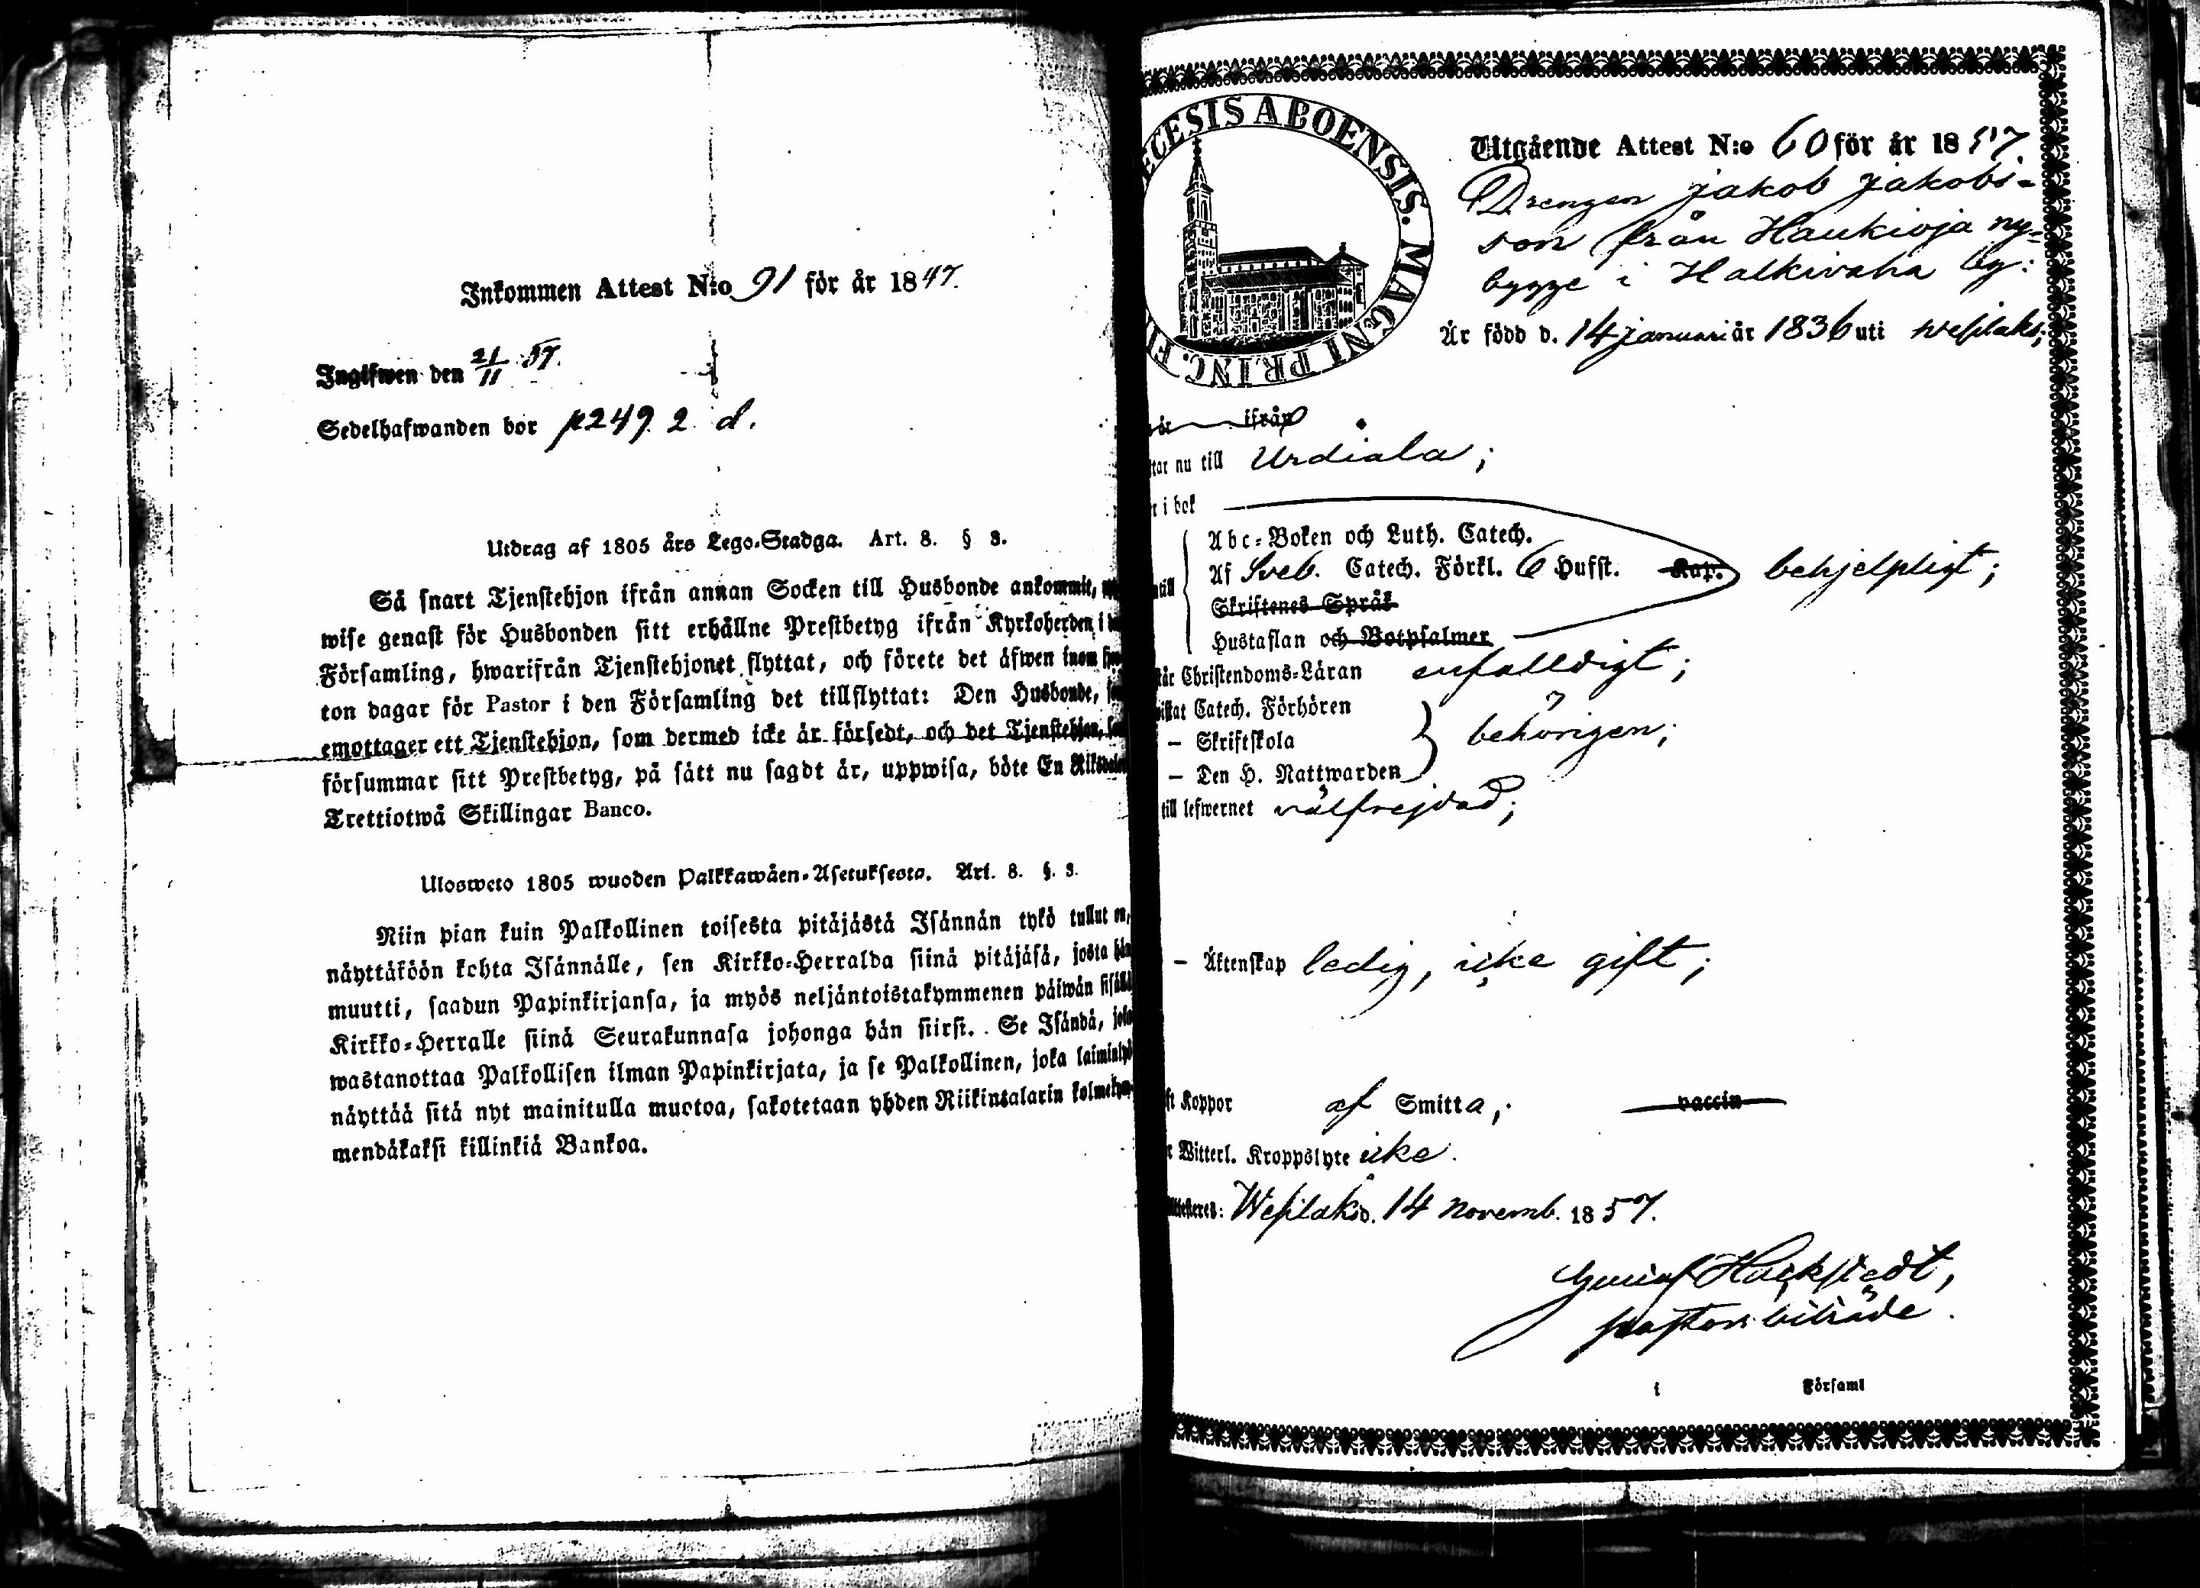 Inkommen Attest N:o 91 för år 1847.
Ingifwen den 21/11 57.
Sedelhafwanden bor p 249. 2 d.
Utdrag af 1805 års Lego-Stadga. Art. 8. § 3.
Så snart Tjenstehjon ifrån annan Socken till Husbonde ankommit,
wise genast för Husbonden sitt erhållne Prestbetyg ifrån Kyrkoherden i
Församling, hwarifrån Tjenstehjonet flyttat, och förete det äfwen inom
ton dagar för Pastor i den Församling det tillflyttat: Den Husbonde,
emottager ett Tjenstehjon, som dermed icke är försedt, och det Tjenstehjon,
försummar sitt Prestbetyg, på sätt nu sagdt är, uppwisa, böte En Riksdaler
Trettiotwå Skillingar Banco.
Ulosweto 1805 wuoden Palkkawäen-Asetuksesta. Art. 8. §. 3.
Niin pian kuin Palkollinen toisesta pitäjästä Isännän tykö tullut on,
näyttäköön kohta Isännälle, sen Kirkko-Herralda siinä pitäjäsä, josta hän
muutti, saadun Papinkirjansa, ja myös neljäntoistakymmenen päiwän sisällä
Kirkko-Herralle siinä Seurakunnasa johonga hän siirsi. Se Isändä, joka
wastanottaa Palkollisen ilman Papinkirjata, ja se Palkollinen, joka laiminlyö
näyttää sitä nyt mainitulla muotoa, sakotetaan yhden Riikintalarin kolmekym-
mendäkaksi killinkiä Bankoa.
ECESIS ABOENSIS. MAGNI PRINC. FI
Utgående Attest N:o 60 för år 1857
Drengen Jakob Jakobs-
son från Haukioja ny-
bygge i Halkivaha by:
Är född d. 14 januari år 1836 uti Wesilaks;
ifrån
tar nu till Urdiala;
i bok
Abc-Boken och Luth. Catech.
Af Sveb. Catech. Förkl. 6 Hufst. Kap. behjelpligt;
Skriftenes Språk
Hustaflan och Botpsalmer
Christendoms-Läran enfalldigt;
Catech. Förhören
— Skriftskola behörigen;
— Den H. Nattwarden
till lefwernet välfrejdad;
— Äktenskap ledig, icke gift;
Koppor af Smitta, vaccin
Witterl. Kroppslyte icke.
Wesilaks d. 14 novemb. 1857.
Gustaf Hackstedt,
pastors biträde.
i Församl